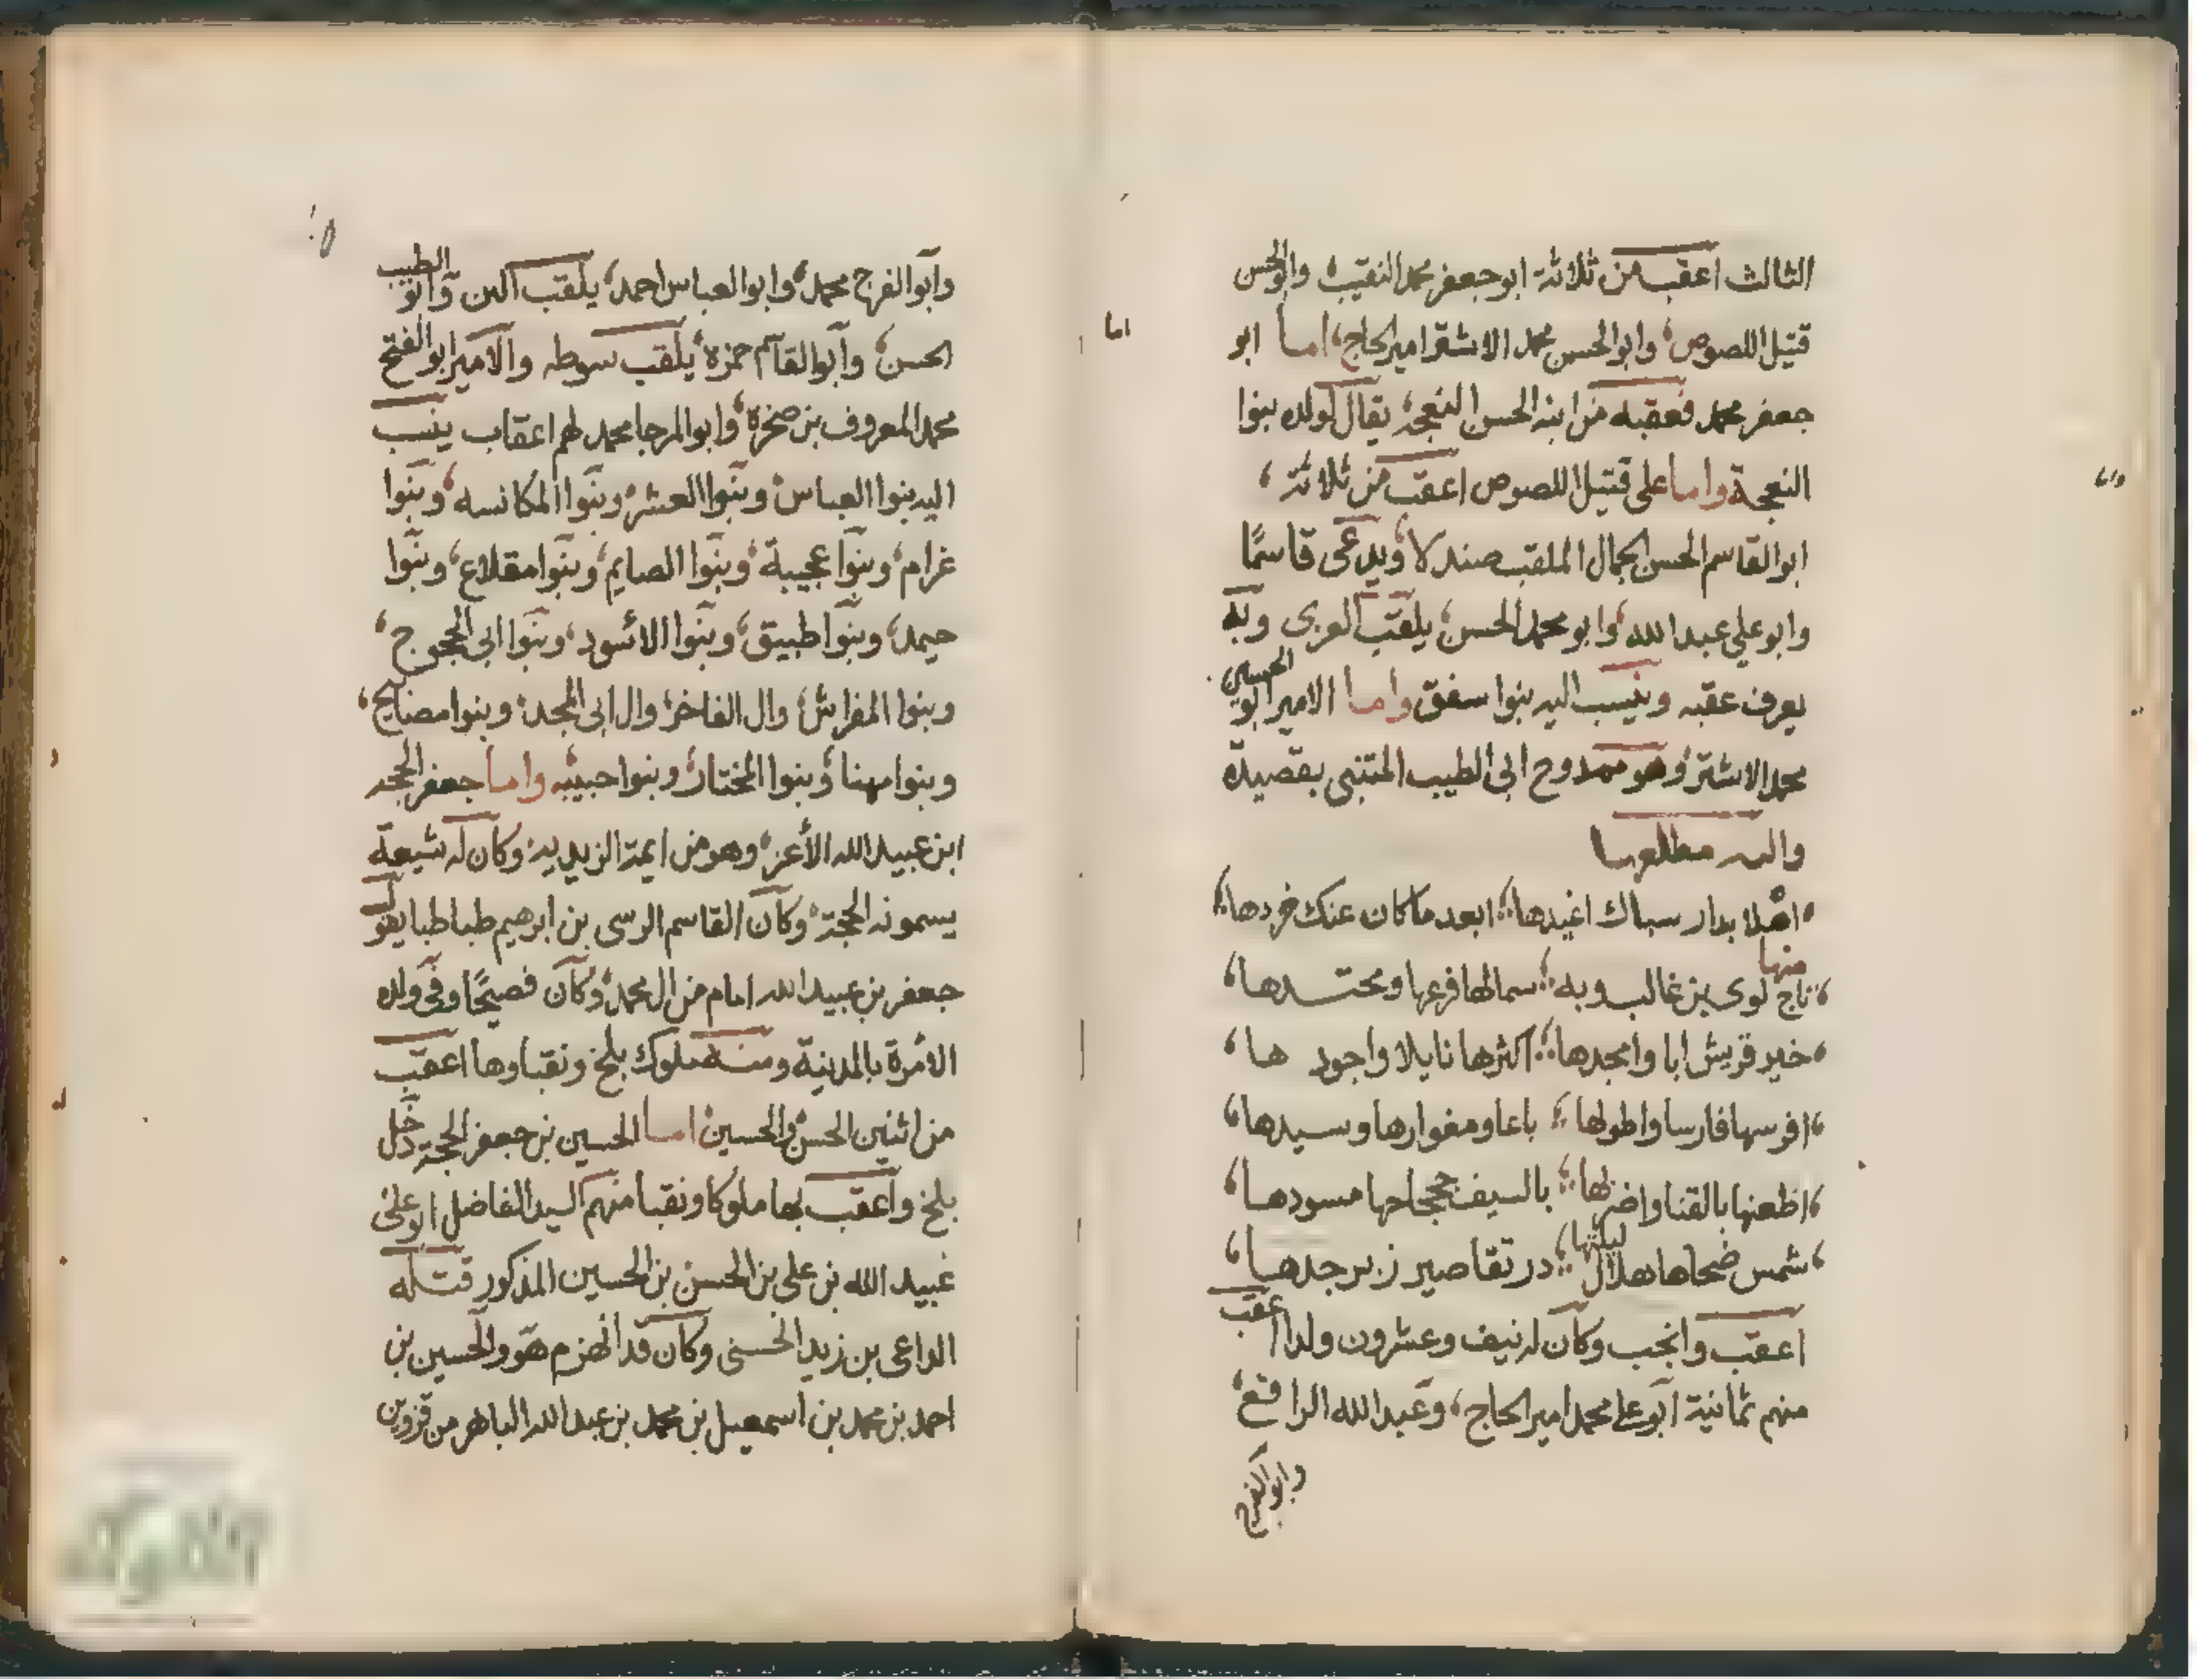 الثالث اعقب من ثلاثة ابو جعفر محمد النقيب وابو الحسن
قتيل اللصوص وابو الحسن محمد الاشتر امير الحاج اما ابو
جعفر محمد فعقبه من ابنه الحسن النعجه يقال لولده بنوا
النعجة واما على قتيل اللصوص اعقب من ثلاثة
ابو القاسم الحسن الجمال الملقب صندلا ويدعى قاسمًا
وابو علي عبد الله وابو محمد الحسن يلقب العرى وبه
يعرف عقبه وينسب اليه بنوا سفق واما الامير ابو الحسين
محمد الاشتر وهو ممدوح ابى الطيب المتنبى بقصيدة
والده مطلعها
اهلا بدار سباك اغيدها ابعد ما كان عنك خردها
منها
تاج لوى بن غالب وبه سما لها فرعها ومحتدها
خير قريش ابا وامجدها اكثرها نايلا واجود ها
افرسها فارسا واطولها باعا ومغوارها وسيدها
اطعنها بالقنا واضربها بالسيف جحجاحها مسودها
شمس ضحاها هلال ليلتها در تقاصير زبرجدها
اعقب وانجب وكان له نيف وعشرون ولدا اعقب
منهم ثمانية ابو على محمد امير الحاج وعبد الله الرافع
وابو الفرج
اما
واما
وابو الفرج محمد وابو العباس احمد يلقب البن وابو الطيب
الحسن وابو القاسم حمزه يلقب سوطه والامير ابو الفتح
محمد المعروف بن صخرة وابو المرجا محمد لهم اعقاب ينسب
اليه بنوا العباس وبنوا العشر وبنوا المكانسه وبنوا
غرام وبنوا عجيبة وبنوا الصايم وبنوا مقلاع وبنوا
حيمد وبنوا طبيق وبنوا الاسود وبنوا ابى الججوج
وبنوا المفراش وال الفاخر وال ابى المجد وبنوا مصنايح
وبنوا مهنا وبنوا المختار وبنوا حبيبه واما جعفر الحجه
ابن عبيد الله الأعرج وهو من ايمة الزيديه وكان له شيعة
يسمونه الحجة وكان القاسم الرسى بن ابرهيم طباطبا يقول
جعفر بن عبيد الله امام من ال محمد وكان فصيحًا وفى ولده
الأمرة بالمدينة ومنه ملوك بلخ ونقباوها اعقب
من اثنين الحسن والحسين اما الحسين بن جعفر الحجة دخل
بلخ واعقب بها ملوكا ونقبا منهم السيد الفاضل ابو على
عبيد الله بن على بن الحسن بن الحسين المذكور قتله
الداعى بن زيد الحسنى وكان قد انهزم هو والحسين بن
احمد بن محمد بن اسمعيل بن محمد بن عبد الله الباهر من قزوين
الألوكة